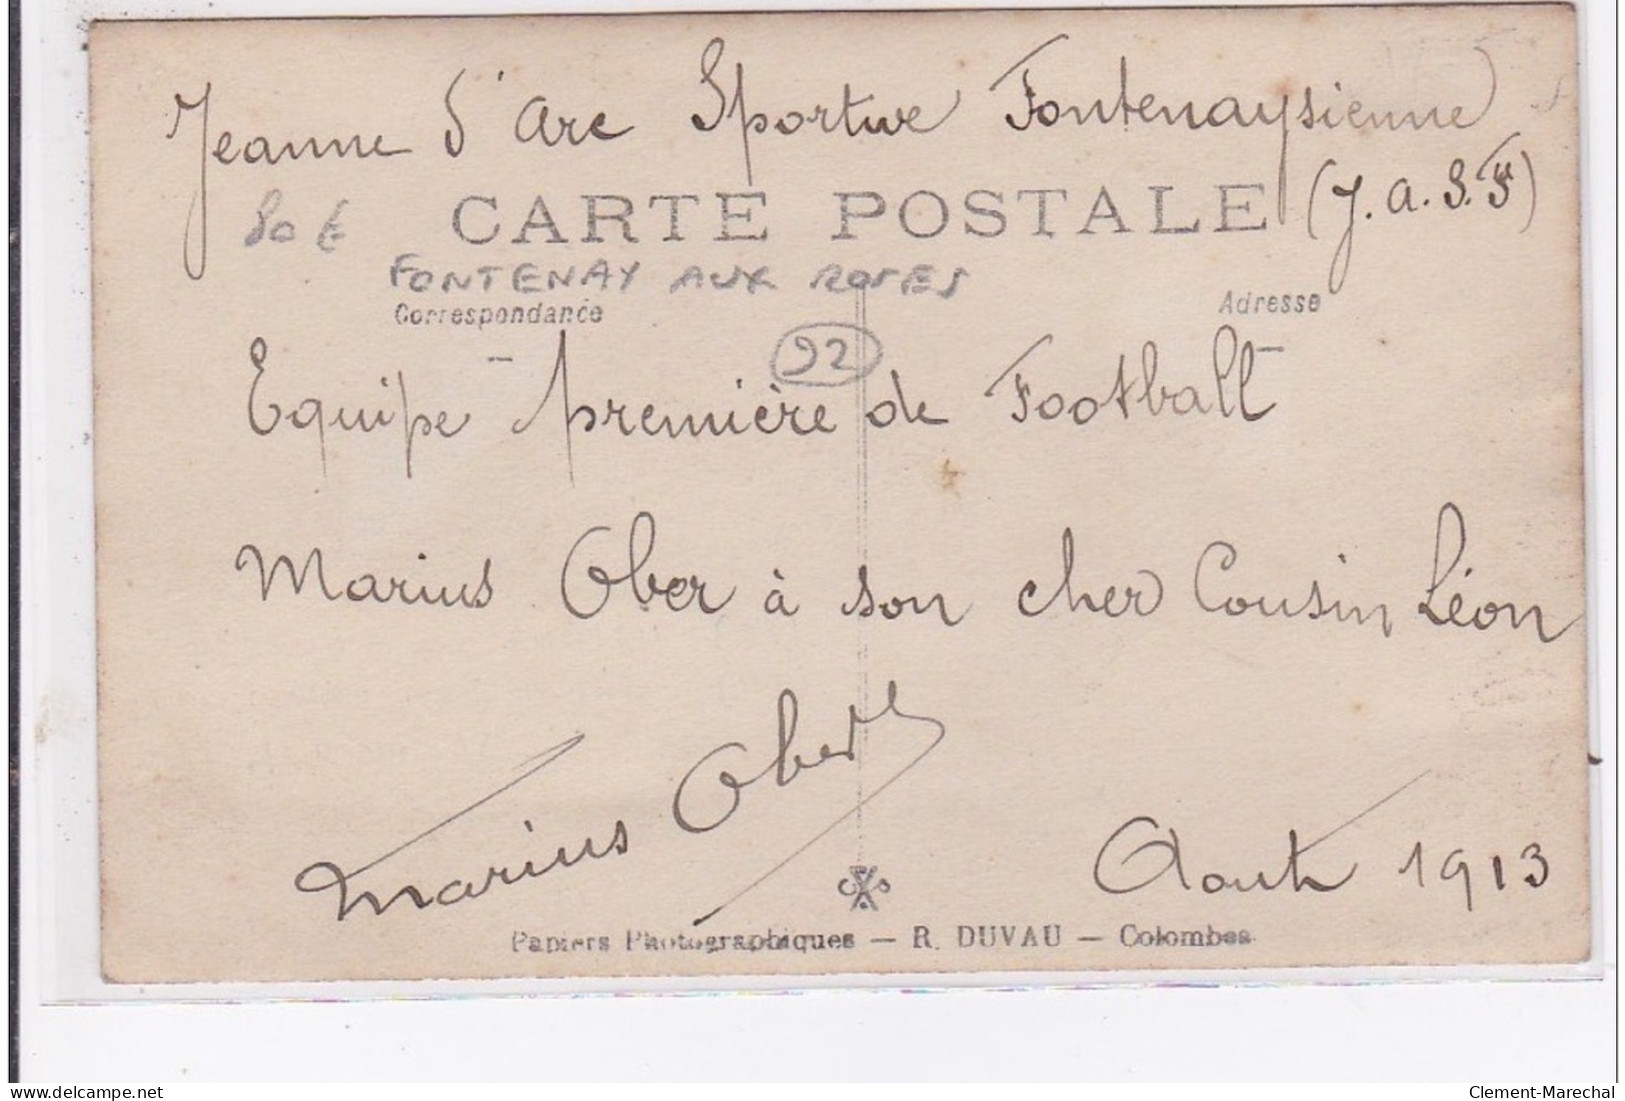 Jeanne d'Arc Sportive Fontenaysienne
(J.A.S.F)
80 €
CARTE POSTALE
FONTENAY AUX ROSES
Correspondance
Adresse
92
Equipe première de Football
Marius Ober à son cher Cousin Léon
Marius Ober
Aout 1913
Papiers Photographiques — R. DUVAU — Colombes
www.delcampe.net
Clement-Marechal